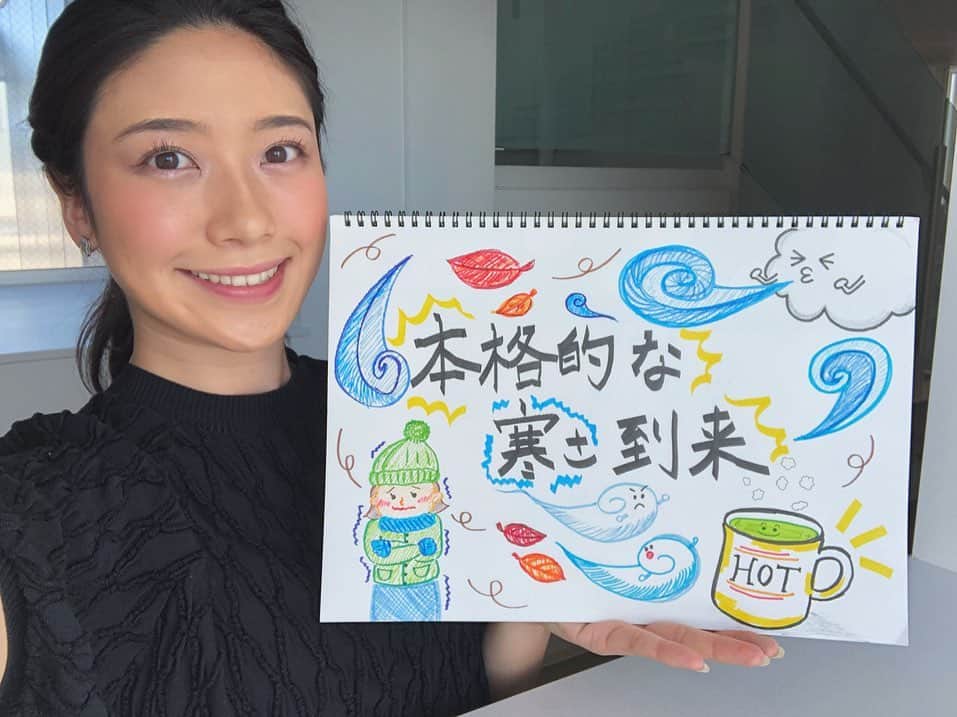 本格的な
寒さ到来
HOT